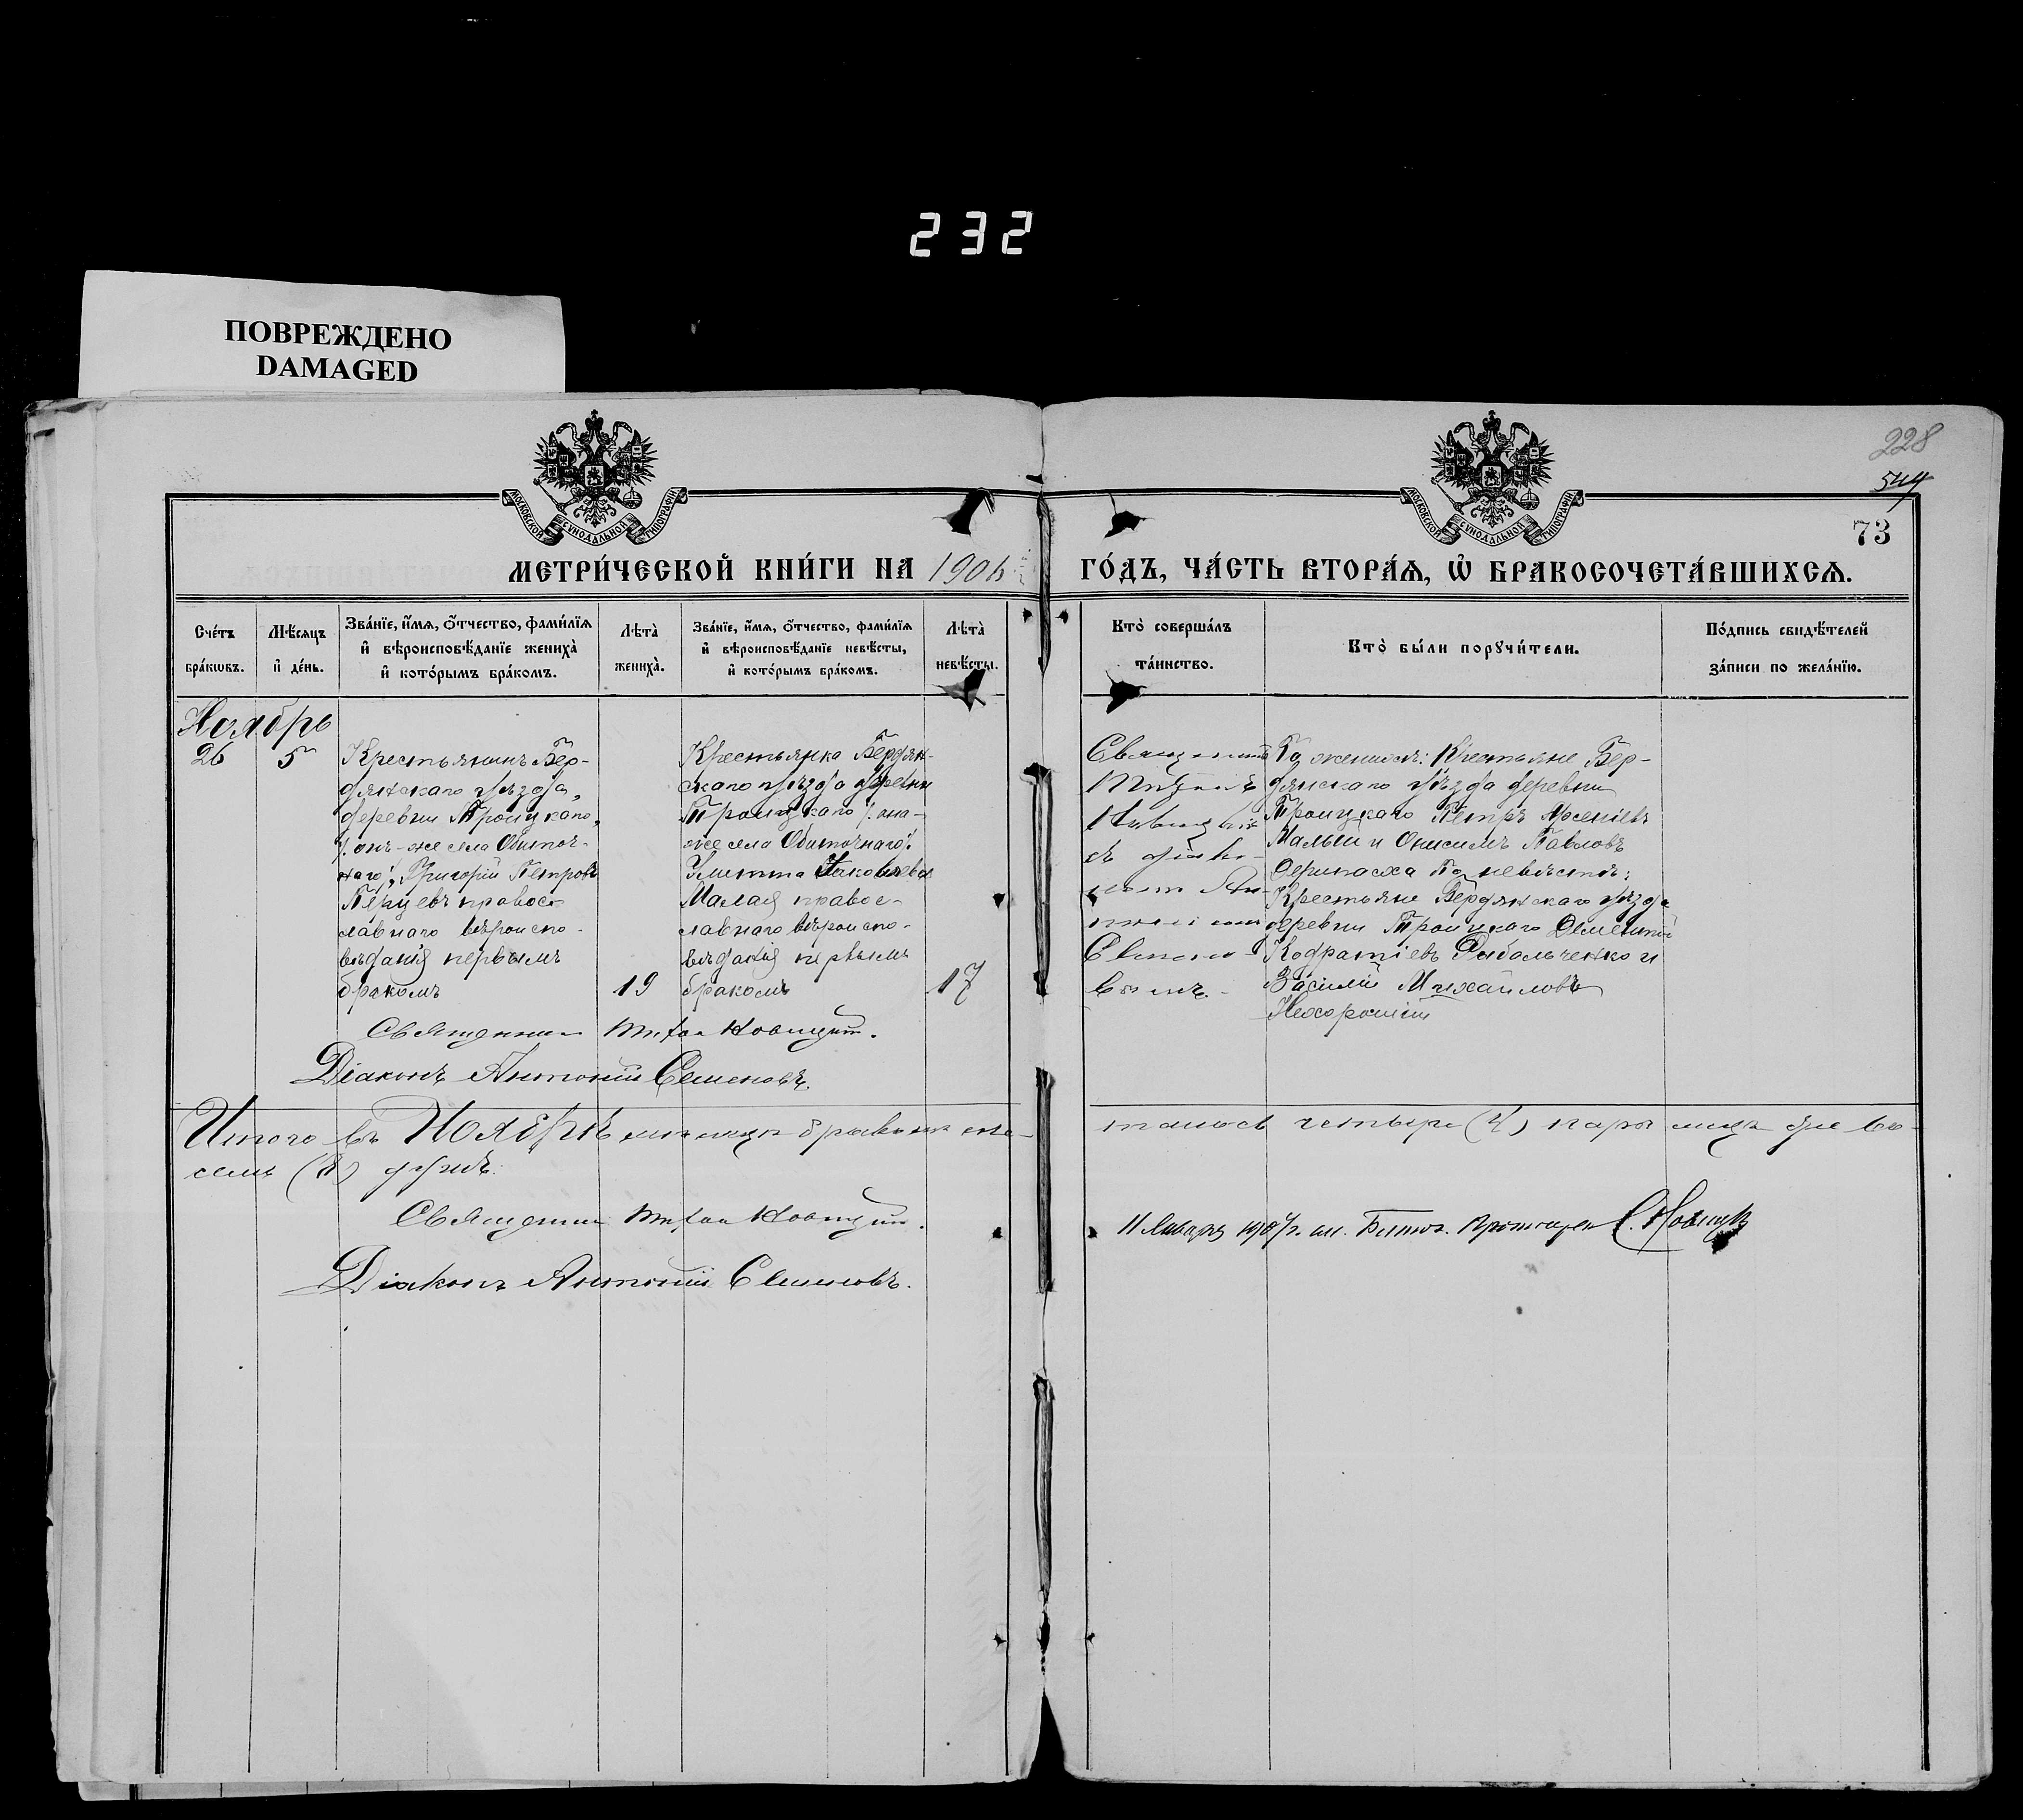 232
ПОВРЕЖДЕНО
DAMAGED
МОСКОВСКОЙ СѴНОДАЛЬНОЙ ТИПОГРАФІИ
МОСКОВСКОЙ СѴНОДАЛЬНОЙ ТИПОГРАФІИ
228
544
73
МЕТРИ́ЧЕСКОЙ КНИ́ГИ НА 1906 ГО́ДЪ, ЧА́СТЬ ВТОРА́Ѧ, Ѡ҆ БРАКОСОЧЕТА́ВШИХСѦ.
Сче́тъ
бра́кѡвъ.
Мѣ́сяцъ
и҆ де́нь.
Зва́нїе, и҆́мя, ѻ҆́тчество, фами́лїѧ
и҆ вѣроисповѣ́данїе жениха̀
и҆ кото́рымъ бра́комъ.
Лѣта̀
жениха̀.
Зва́нїе, и҆́мя, ѻ҆́тчество, фами́лїѧ
и҆ вѣроисповѣ́данїе невѣ́сты,
и҆ кото́рымъ бра́комъ.
Лѣта̀
невѣ́сты.
Кто̀ соверша́лъ
та́инство.
Кто̀ бы́ли порꙋчи́тели.
По́дпись свидѣ́телей
за́писи по жела́нїю.
Ноябрь
26
5
Крестьянинъ Бер-
дянскаго уѣзда,
деревни Троицкаго,
/: онъ-же села Обиточ-
наго :/ Григорій Петровъ
Перцевъ правос-
лавнаго вѣроиспо-
вѣданія первымъ
бракомъ
19
Крестьянка Бердян-
скаго уѣзда деревни
Троицкаго /: она-
же села Обиточнаго :/
Улиттa Яковлева
Малая правос-
лавнаго вѣроиспо-
вѣданія первымъ
бракомъ
17
Священникъ
Новицкій
съ діако-
номъ Ан-
тоніемъ
Семено-
вымъ.
По женихѣ: Крестьяне Бер-
дянскаго уѣзда деревни
Троицкаго Петръ Арсеніевъ
Малый и Онисимъ Павловъ
По невѣстѣ:
Крестьяне Бердянскаго уѣзда
деревни Троицкаго Дементій
Кодратіевъ Рыбальченко и
Василій Михайловъ
Нехорошій
Священникъ Новицкій.
Діаконъ Антоній Семеновъ.
Итого въ Ноябрѣ мѣсяцѣ браковъ сос-
тоялось четыре (4) пары лицъ обое во-
семь (8) душъ.
Священникъ Новицкій.
Діаконъ Антоній Семеновъ.
11 Января 1907 г. Протоіерей С. Новицкій